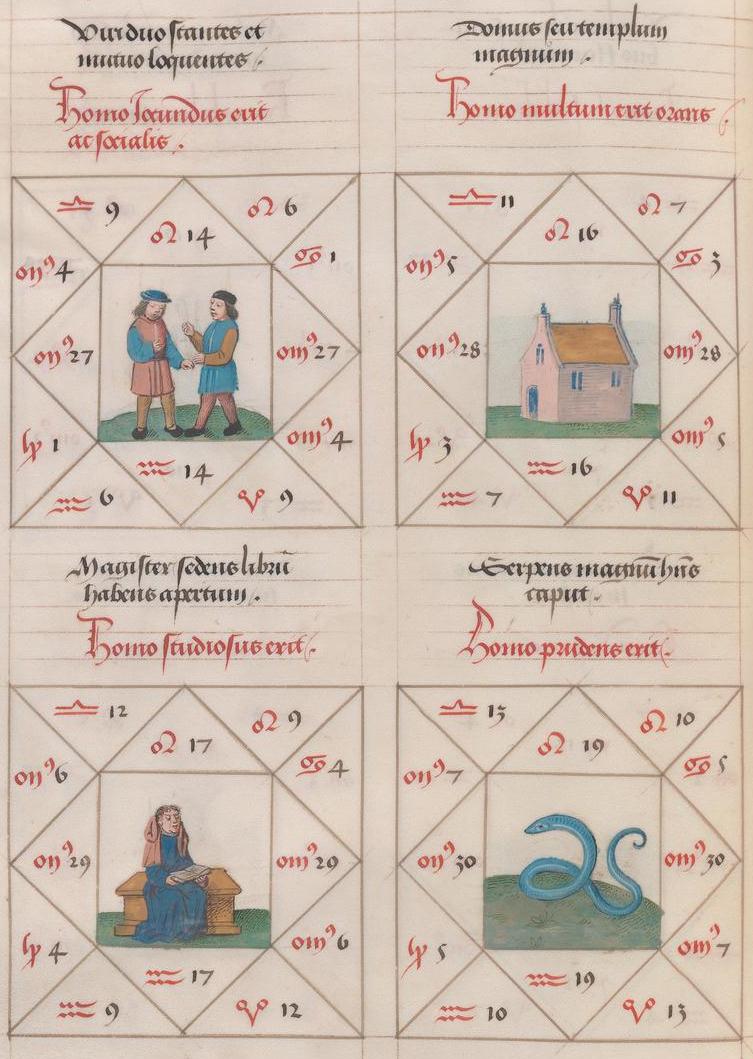 Viri duo stantes et
mutuo loquentes.
Homo Jocundus erit
ac socialis.
♎ 9
♌ 14
♌ 6
4
♋ 1
27
27
1
4
♒ 14
♒ 6
9
Domus seu templum
magnum.
Homo multum erit orans
♎ 11
♌ 16
♌ 7
5
♋ 3
28
28
3
5
♒ 16
♒ 7
11
Magister sedens librū
habens apertum.
Homo studiosus erit.
♎ 12
♌ 17
♌ 9
6
♋ 4
29
29
4
6
♒ 17
♒ 9
12
Serpens magnū hn̄s
caput.
Homo prudens erit.
♎ 13
♌ 19
♌ 10
7
♋ 5
30
30
5
7
♒ 19
♒ 10
13